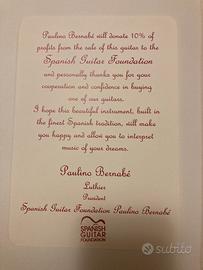 Paulino Bernabé will donate 10% of
profits from the sale of this guitar to the
Spanish Guitar Foundation
and personally thanks you for your
cooperation and confidence in buying
one of our guitars.
I hope this beautiful instrument, built in
the finest Spanish tradition, will make
you happy and allow you to interpret
music of your dreams.
Paulino Bernabé
Luthier
President
Spanish Guitar Foundation Paulino Bernabé
SPANISH
GUITAR
FOUNDATION
subito